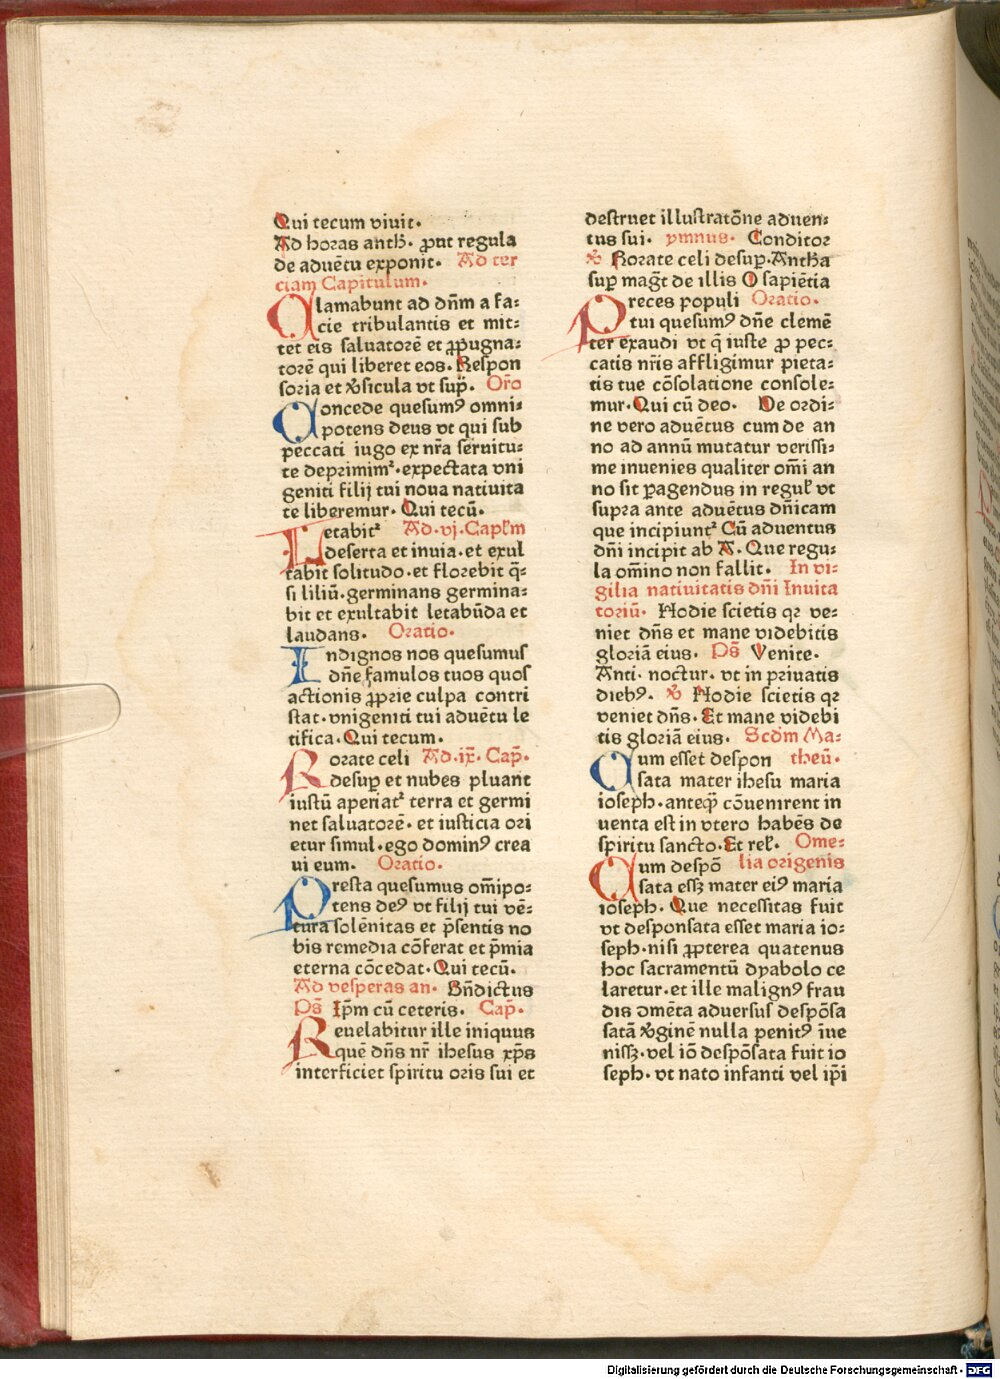 Qui tecum viuit.
Ad horas anth̄. ꝓut regula
de aduētu exponit. Ad ter
ciam Capitulum.
Clamabunt ad dn̄m a fa:
cie tribulantis et mit:
tet eis saluatorē et ꝓpugna:
torē qui liberet eos. Respon
soria et v̄sicula vt sup̄. Or̄o
Concede quesumꝰ omni:
potens deus vt qui sub
peccati iugo ex nr̄a seruitu:
te deprimim᷑. expectata vni
geniti filij tui noua natiuita
te liberemur. Qui tecū.
Letabit᷑ Ad. vj. Capl̄m
deserta et inuia. et exul
tabit solitudo. et florebit q̄:
si liliū. germinans germina:
bit et exultabit letabūda et
laudans. Oratio.
Indignos nos quesumus
dn̄e famulos tuos quos
actionis ꝓprie culpa contri
stat. vnigeniti tui aduētu le
tifica. Qui tecum.
Rorate celi Ad. ix. Cap̄.
desuꝑ et nubes pluant
iustū aperiat᷑ terra et germi
net saluatorē. et iusticia ori
etur simul. ego dominꝰ crea
ui eum. Oratio.
Presta quesumus om̄ipo:
tens deꝰ vt filij tui vē:
tura solēnitas et p̄sentis no
bis remedia cōferat et p̄mia
eterna cōcedat. Qui tecū.
Ad vesperas an. Bn̄dictus
Ps̄ Ip̄m cū ceteris. Cap̄.
Reuelabitur ille iniquus
quē dn̄s nr̄ ihesus xp̄s
interficiet spiritu oris sui et
destruet illustratōne aduen:
tus sui. ymnus. Conditor
℣ Rorate celi desuꝑ. Antha
suꝑ maḡt de illis O sapiētia
Preces populi Oratio.
tui quesumꝰ dn̄e clemē
ter exaudi vt q̄ iuste ꝓ pec:
catis nr̄is affligimur pieta:
tis tue cōsolatione console:
mur. Qui cū deo. De ordi:
ne vero aduētus cum de an
no ad annū mutatur verissi:
me inuenies qualiter om̄i an
no sit ꝑagendus in regul̄ vt
supra ante aduētus dn̄icam
que incipiunt᷑ Cū aduentus
dn̄i incipit ab A. Que regu:
la om̄ino non fallit. In vi:
gilia natiuitatis dn̄i Inuita
toriū. Hodie scietis qꝛ ve:
niet dn̄s et mane videbitis
gloriā eius. Ps̄ Venite.
Anti. noctur. vt in priuatis
diebꝰ. ℣ Hodie scietis qꝛ
veniet dn̄s. Et mane videbi
tis gloriā eius. Scdm Ma:
Cum esset despon theū.
sata mater ihesu maria
ioseph. anteq̄ cōuenirent in
uenta est in vtero habēs de
spiritu sancto. Et rel̄. Ome:
Cum despō lia origenis
sata essꝫ mater eiꝰ maria
ioseph. Que necessitas fuit
vt desponsata esset maria io:
seph. nisi ꝓpterea quatenus
hoc sacramentū dyabolo ce
laretur. et ille malignꝰ frau
dis ɔmēta aduersus despōsa
satā v̄ginē nulla penitꝰ īue
nissꝫ. vel iō despōsata fuit io
seph. vt nato infanti vel ip̄i
Digitalisierung gefördert durch die Deutsche Forschungsgemeinschaft - DFG